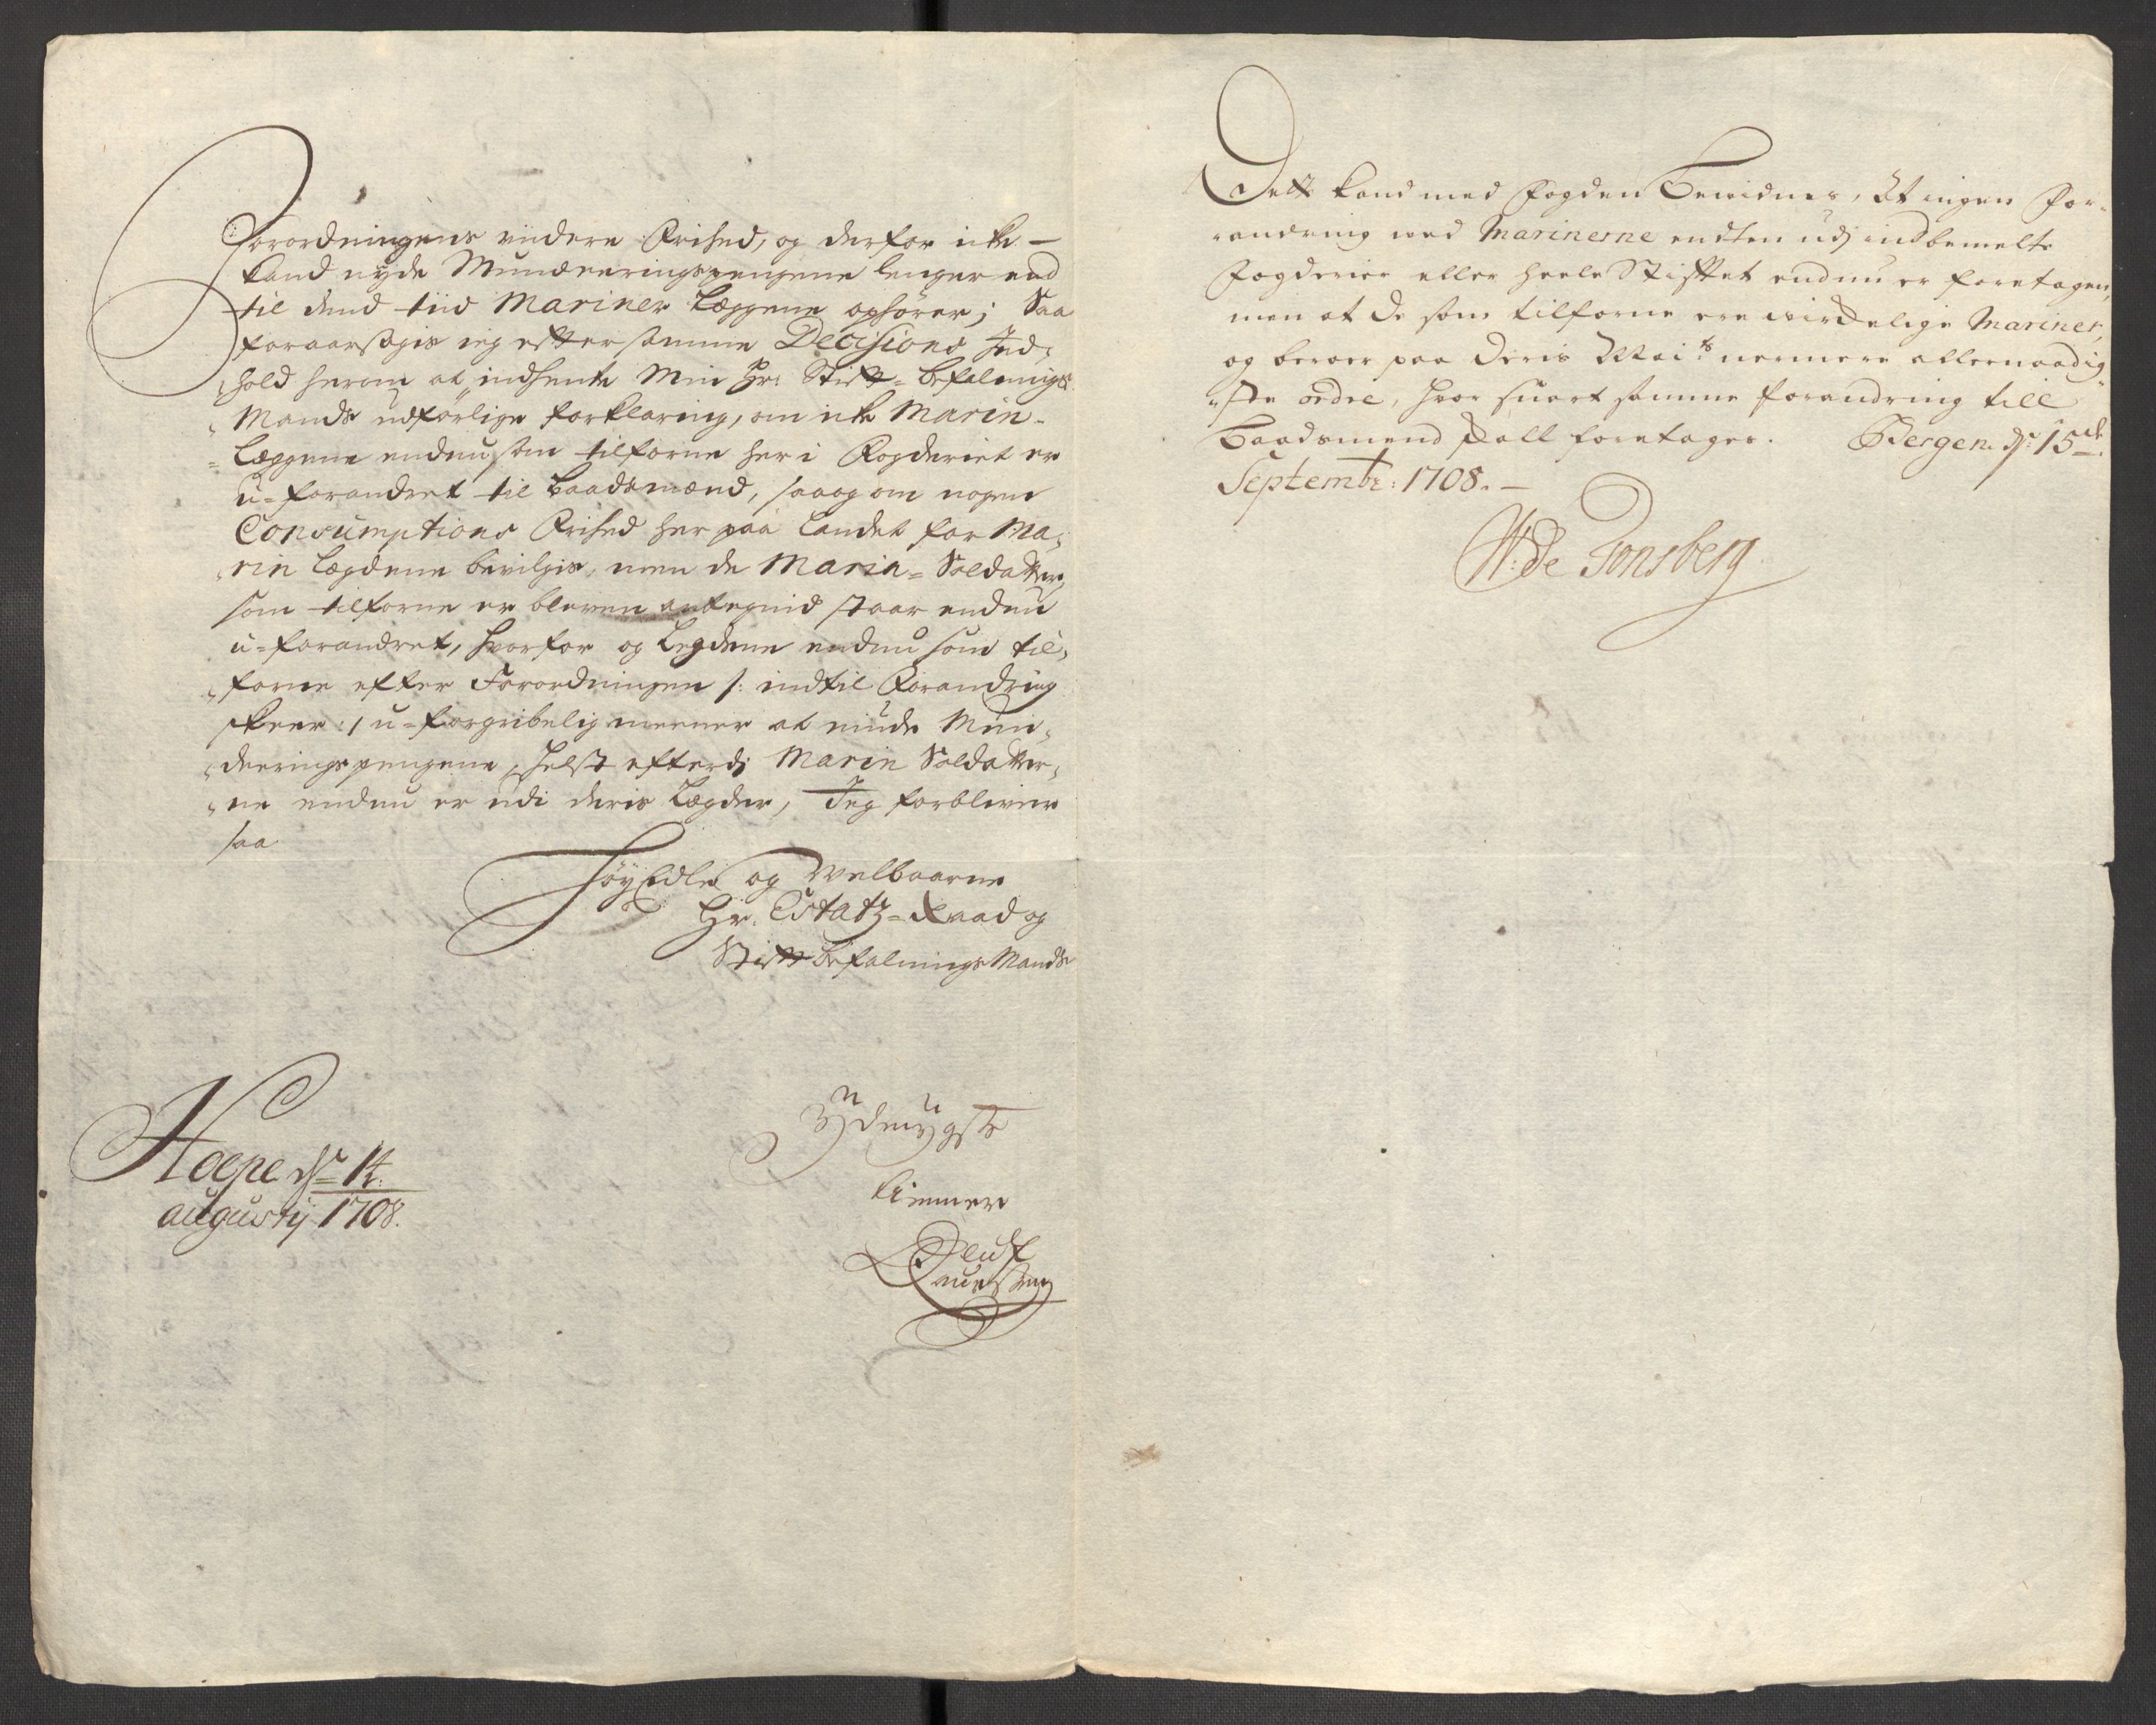 Forordningens viidere Frihed, og derfor icke
kand nyde Mundeeringspengene lenger end
til dend tiid Mariner Læggene ophører; Saa
foraarsagis ieg efter samme Decisions Ind-
hold herom at indhente Min Hr: Stifts-befalnings
Mands udførlige forklaring, om icke Marin-
Læggene endnu som tilforne her i Fogderiet er
u-forandret til baadsmænd, saa og om nogen
Consumptions Frihed her paa Landet for Ma-
rin Lægdene bevilgis, men de Marin-Soldatter,
som tilforne er bleven antegnid staar endnu
u-forandret, hvorfor og Legdene endnu som til-
forne efter Forordningen /: indtil Forandring
skeer :/ u-forgribelig meener at niude Mun-
deeringspengene, helst efterdj Marin Soldatter-
ne endnu er udi deris Lægder, Jeg forbliver
saa
HøyEdle og Welbaarne
Hr. Estatz-Raad og
Stiftsbefalnings Mands
Ydmygste
tienner
Hoepe dr. 14.
augustij 1708.
Dette kand med Fogden Bevidnes, At ingen For-
andring med Marinerne endten udj indbemelte
Fogderier eller heele Stiftet endnu er foretagen,
men at de som tilforne ere wirckelige Mariner,
og beroer paa Deris Maits nermere allernaadig-
ste ordre, hvor snart samme forandring till
Baadsmend skall foretages. Bergen dr: 15de
Septembr: 1708.
W: de Tonsberg